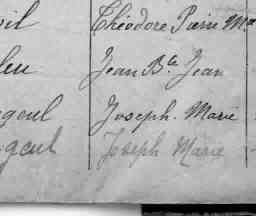 vil Théodore Pierre Ma
leu Jean Bte Jean
geul Joseph-Marie
geul Joseph Marie